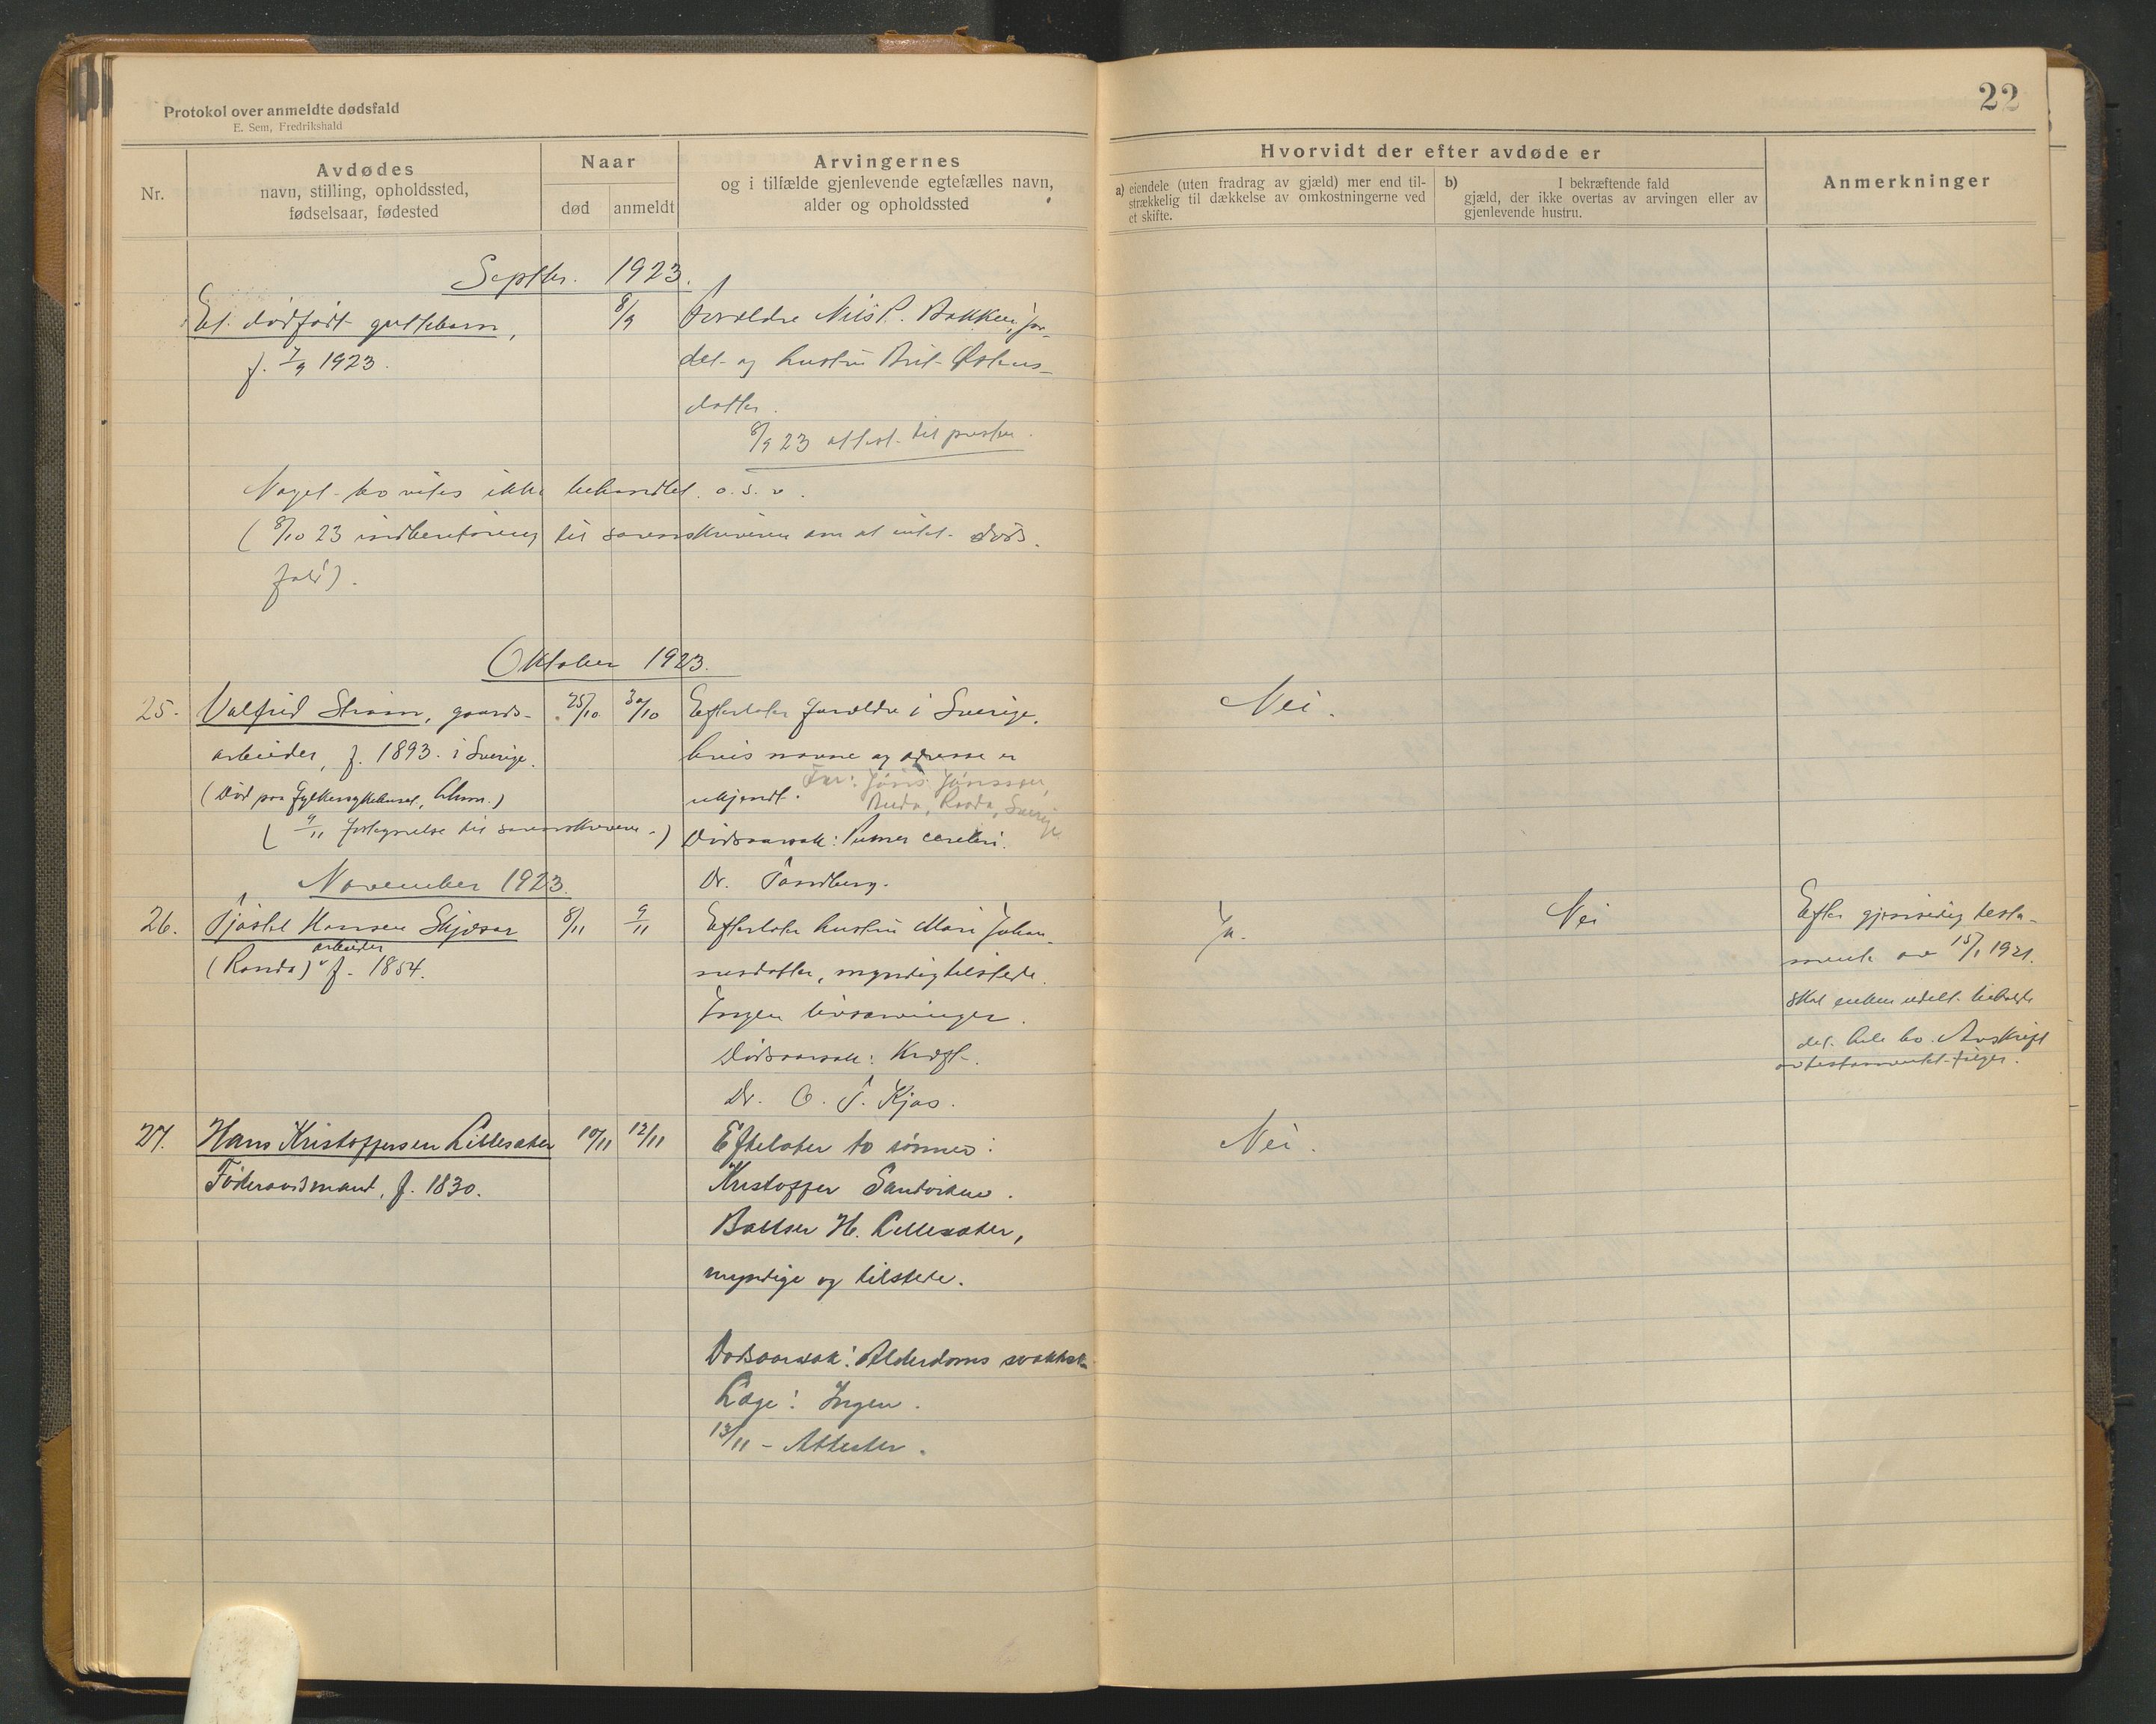 22
Protokol over anmeldte dødsfald
E. Sem, Fredrikshald
Nr.
Avdødes
navn, stilling, opholdssted,
fødselsaar, fødested
Naar
død
anmeldt
Arvingernes
og i tilfælde gjenlevende egtefælles navn,
alder og opholdssted
Hvorvidt der efter avdøde er
a) eiendele (uten fradrag av gjæld) mer end til-
strækkelig til dækkelse av omkostningerne ved
et skifte.
b) I bekræftende fald
gjæld, der ikke overtas av arvingen eller av
gjenlevende hustru.
Anmerkninger
Septbr. 1923.
Et dødfødt guttebarn, 8/9 Forældre Nils P. Bakken,
f. 7/9 1923. og hustru Brit Østens-
datter.
8/9 23 attest til presten.
Noget bo vites ikke behandlet o.s.v.
(8/10 23 indberetning til sorenskriveren om at intet døds-
fald).
Oktober 1923.
25. Valfrid Strøm, gaards- 25/10 30/10 Efterlater forældre i Sverige, Nei.
arbeider, f. 1893 i Sverige. hvis navne og adresse er
ukjendt. Far: Jöns Jönsson,
(Død paa fylkessykehuset, ) Råda, Sverige
(9/11 til sorenskriveren.) Dødsaarsak: Tumor cerebri.
Dr. Sandberg.
November 1923.
26. Tjøstel Hansen Skjæsar 8/11 9/11 Efterlater hustru Mari Johan- Ja. Nei Efter gjensidig testa-
(Randa) arbeider f. 1854. nesdatter, myndig tilstede. mente av 15/1 1921.
Ingen livsarvinger. skal enken udelt beholde
Dødsaarsak: Kræft. det hele bo. Avskrift
av testamentet følger.
Dr. O. T. Kjos.
27. Hans Kristoffersen Lillesæter 10/11 12/11 Efterlater to sønner: Nei.
Føderaadsmand, f. 1830. Kristoffer Sandviken.
Baltser H. Lillesæter,
myndige og tilstede.
Dødsaarsak: Alderdoms svakhet
Læge: Ingen.
13/11 - Attester.